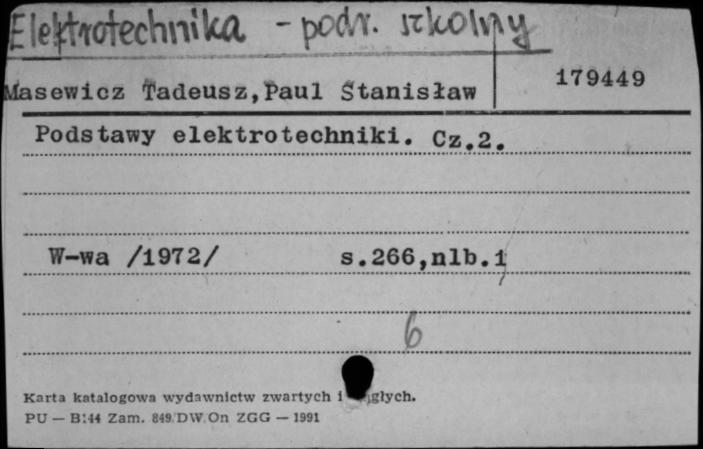 Elektrotechnika - podr. szkolny
Masewicz Tadeusz,Paul Stanisław
179449
Podstawy elektrotechniki. Cz.2.
W-wa /1972/ s.266,nlb.1
6
Karta katalogowa wydawnictw zwartych i
PU — B144 Zam. 849 DW.On ZGG — 1991